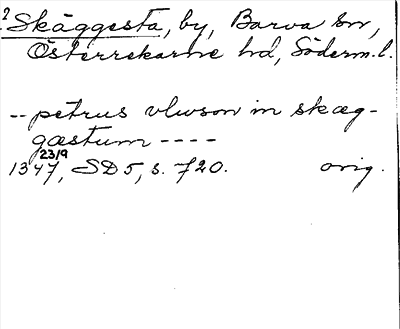 2 Skäggesta, by, Barva sn,
Österrekarne hd, Söderm. l.
-- petrus vlwson in skæg-
gæstum ----
23/9
1347, SD 5, s. 720. orig.